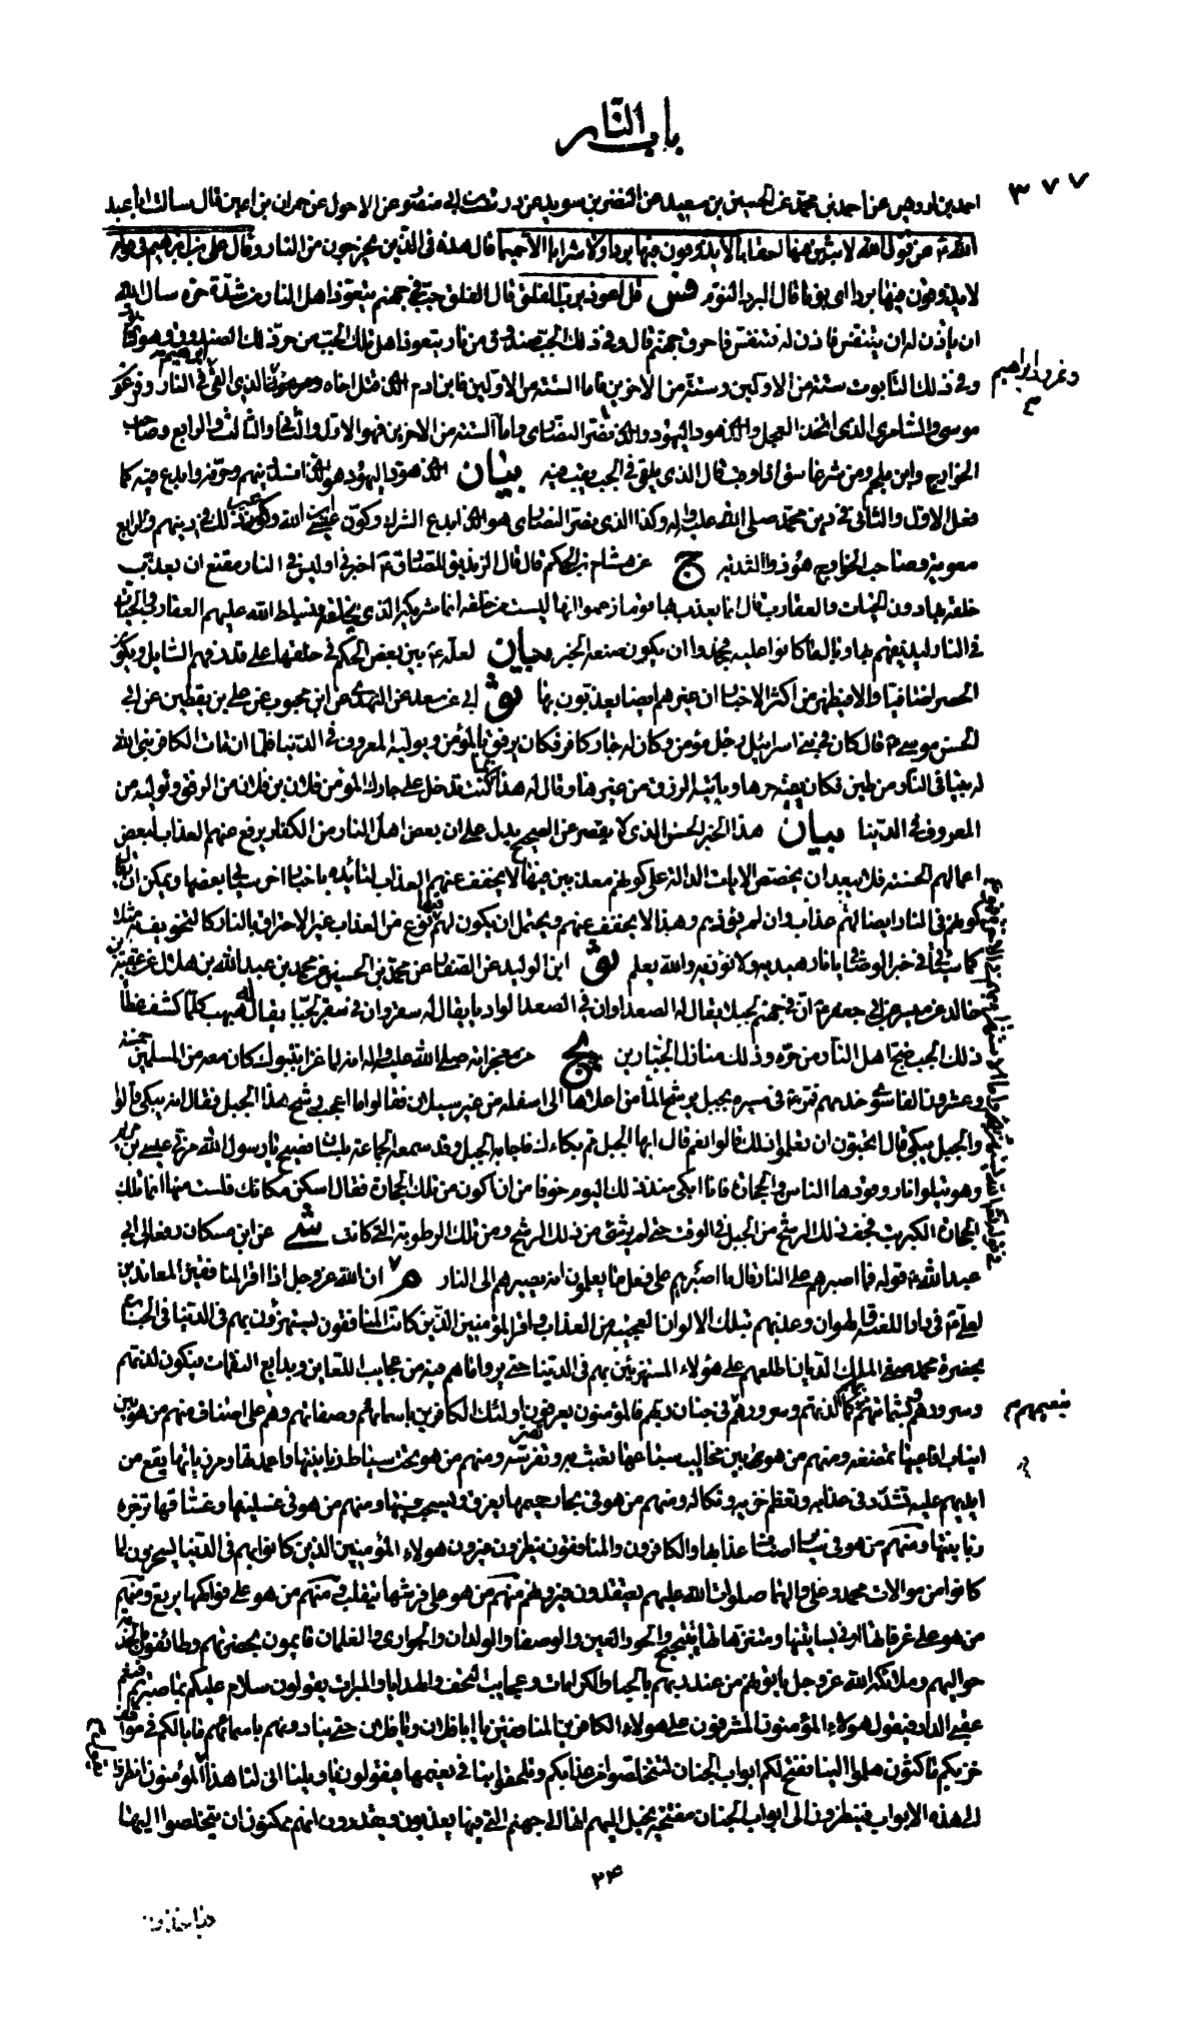 باب النار
٣٧٧
احمد بن ادريس عن احمد بن محمد عن الحسين بن سعيد عن النضر بن سويد عن درست بن ابي منصور عن الاحول عن حمران بن اعين قال سالت ابا عبد
الله ع عن قول الله لابثين فيها احقابا لا يذوقون فيها بردا ولا شرابا الا حميما قال هذه في الذين يخرجون من النار وقال علي بن ابرهيم في قوله
لا يذوقون فيها بردا اي نوما قال البرد النوم فس قل اعوذ برب الفلق قال الفلق جب في جهنم يتعوذ اهل النار من شدة حره سال الله
ان ياذن له ان يتنفس فاذن له فتنفس فاحرق جهنم قال وفي ذلك الجب صندوق من نار يتعوذ اهل تلك الجب من حر ذلك الصندوق وهو التابوت
وفي ذلك التابوت ستة من الاولين وستة من الاخرين فاما الستة من الاولين فابن ادم الذي قتل اخاه ونمرود ابراهيم الذي القى ابرهيم في النار وفرعون
ونمرود ابراهيم
موسى والسامري الذي اتخذ العجل والذي هود اليهود والذي نصر النصارى واما الستة من الاخرين فهو الاول والثاني والثالث والرابع وصاحب
الخوارج وابن ملجم ومن شر غاسق اذا وقب قال الذي يلقى في الجب يقب فيه بيان الذي هود اليهود هو الذي افسد دينهم وحرفه وابدع فيه كما
فعل الاول والثاني في دين محمد صلى الله عليه واله وكذا الذي نصر النصارى هو الذي ابدع الشرك وكون عيسى ابن الله وغير ذلك في دينهم والرابع
معوية وصاحب الخوارج هو ذو الثدية ج عن هشام بن الحكم قال قال الزنديق للصادق ع اخبرني اوليس في النار مقنع ان يعذب
خلقه بها دون الحيات والعقارب قال انما يعذب بها قوما زعموا انها ليست من خلقه انما شريكه الذي يخلقه فيسلط الله عليهم العقارب والحيات
في النار ليذيقهم بها وبال ما كانوا عليه فجحدوا ان يكون صنعه الخبر بيان لعله ع بين بعض الحكم في خلقها على قدر فهم السائل ويكون
الحصر اضافيا والا فيظهر من اكثر الاخبار ان غيرهم ايضا يعذبون بها ثو ابي عن سعد عن النهدي عن ابن محبوب عن علي بن يقطين عن ابي
الحسن موسى ع قال كان في بني اسرائيل رجل مؤمن وكان له جار كافر فكان يرفق بالمؤمن ويوليه المعروف في الدنيا فلما ان مات الكافر بنى الله
له بيتا في النار من طين فكان يقيه حرها وياتيه الرزق من غيرها وقال له هذا بما كنت تدخل على جارك المؤمن فلان بن فلان من الرفق وتوليه من
المعروف في الدنيا بيان هذا الخبر الحسن الذي لا يقصر عن الصحيح يدل على ان بعض اهل النار من الكفار يرفع عنهم العذاب لبعض
اعمالهم الحسنة فلا يبعد ان يخصص الايات الدالة على كونهم معذبين فيها لا يخفف عنهم العذاب لتايده باخبار اخر سياتي بعضها ويمكن ان يقال
كونهم في النار ايضا لهم عذاب وان لم يؤذهم وهذا لا يخفف عنهم ويحتمل ان يكون لهم فيها نوع من العذاب غير الاحراق بالنار كالتخويف به مثلا
كما سياتي في خبر الوصافي يا نار هيديه ولا تؤذيه والله يعلم ثو ابن الوليد عن الصفار عن محمد بن الحسين عن محمد بن عبد الله بن هلال عن عقبة بن
خالد عن ميسر عن ابي جعفر ع ان في جهنم لجبلا يقال له الصعدا وان في الصعدا لواديا يقال له سقر وان في سقر لجبا يقال له هبهب كلما كشف غطاء
ذلك الجب ضج اهل النار من حره وذلك منازل الجبارين يج من معجزاته صلى الله عليه واله انه لما غزا بتبوك كان معه من المسلمين خمسة
وعشرون الفا سوى خدمهم فمر ع في مسيره بجبل يرشح الماء من اعلاه الى اسفله من غير سيلان فقالوا ما اعجب رشح هذا الجبل فقال انه يبكي قالوا
والجبل يبكي قال اتحبون ان تعلموا ذلك قالوا نعم قال ايها الجبل مم بكاءك فاجابه الجبل وقد سمعه الجماعة بلسان فصيح يا رسول الله مر بي عيسى بن مريم
وهو يتلو نارا وقودها الناس والحجارة فانا ابكي منذ ذلك اليوم خوفا من ان اكون من تلك الحجارة فقال اسكن مكانك فلست منها انما تلك
الحجارة الكبريت فجف ذلك الرشح من الجبل في الوقت حتى لم ير شئ من ذلك الرشح ومن تلك الرطوبة التي كانت شي عن ابن مسكان رفعه الى ابي
عبد الله ع قوله فما اصبرهم على النار قال ما اصبرهم على فعل ما يعلمون انه يصيرهم الى النار م ان الله عز وجل اذا اقر المنافقين المعاندين
لعلي ع في دار اللعنة والهوان وعذبهم بتلك الالوان العجيبة من العذاب واقر المؤمنين الذين كانت المنافقون يستهزؤن بهم في الدنيا في الجنان مع
بحضرة محمد صفي الملك الديان اطلعهم على هؤلاء المستهزئين بهم في الدنيا حتى يروا ما هم فيه من عجايب اللعاين وبدايع النقمات فيكون لذتهم
وسرورهم بشماتتهم كما لذتهم وسرورهم في جنان ربهم فالمؤمنون يعرفون اولئك الكافرين باسمائهم وصفاتهم وهم على اصناف منهم من هو بين
بنعيمهم م
انياب افاعيها تمضغه ومنهم من هو بين مخاليب سباعها تعبث به وتفترسه ومنهم من هو تحت سياط زبانيتها واعمدتها ومرزباتها يقع من
ايديهم عليه تشدد في عذابه وتعظم خزيه ونكاله ومنهم من هو في بحار حميمها يغرق ويسحب فيها ومنهم من هو في غسلينها وغساقها تزجره
زبانيتها ومنهم من هو في ساير اصناف عذابها والكافرون والمنافقون ينظرون فيرون هولاء المؤمنين الذين كانوا بهم في الدنيا يسخرون لما
كانوا من موالات محمد وعلي والهما صلوات الله عليهم يعتقدون فيرونهم منهم من هو على فرشها يتقلب ومنهم من هو على فواكهها يرتع ومنهم
من هو على غرفاتها او في بساتينها ومتنزهاتها يتبحبح والحور العين والوصفاء والولدان والجواري والغلمان قايمون بحضرتهم وطائفون بالخدمة
حواليهم وملائكة الله عز وجل ياتونهم من عند ربهم بالحباء والكرامات وعجايب التحف والهدايا والمبرات يقولون سلام عليكم بما صبرتم فنعم
عقبى الدار فيقول هؤلاء المؤمنون المشرفون على هولاء الكافرين المنافقين يا ابا فلان ويا فلان حتى ينادونهم باسمائهم ما بالكم في مواقف
خزيكم ماكثون هلموا الينا نفتح لكم ابواب الجنان لتتخلصوا من عذابكم وتلحقوا بنا في نعيمها فيقولون يا ويلنا انى لنا هذا المؤمنون انظروا
الى هذه الابواب فينظرون الى ابواب الجنان مفتحة يخيل اليهم انها الى جهنم التي فيها يعذبون ويقدرون انهم يمكنون ان يتخلصوا اليها
٢٤